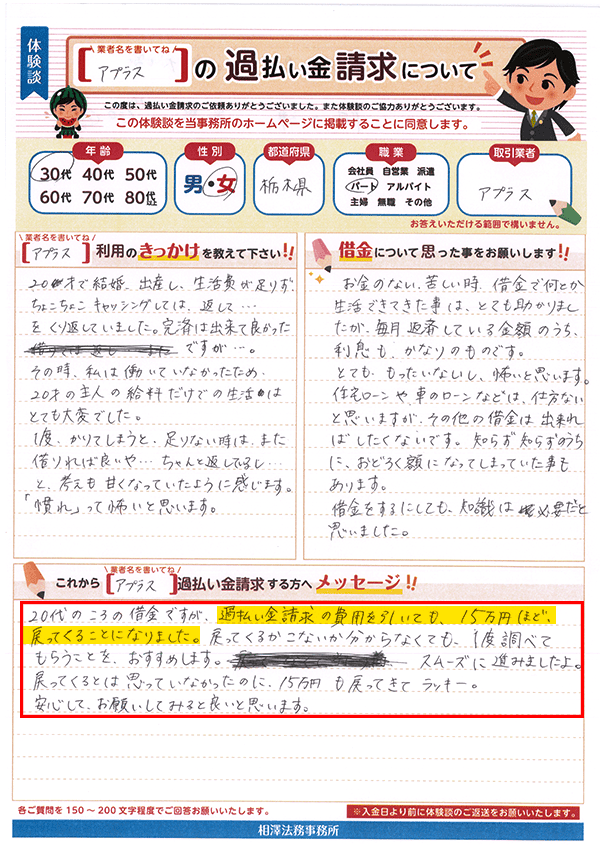 体験談
業者名を書いてね
[アプラス]の過払い金請求について
この度は、過払い金請求のご依頼ありがとうございました。また体験談のご協力ありがとうございます。
この体験談を当事務所のホームページに掲載することに同意します。
年齢
30代 40代 50代
60代 70代 80代以上
性別
男・女
都道府県
栃木県
職業
会社員 自営業 派遣
パート アルバイト
主婦 無職 その他
取引業者
アプラス
お答えいただける範囲で構いません。
業者名を書いてね
[アプラス]利用のきっかけを教えて下さい!!
20才で結婚、出産し、生活費が足りず
ちょこちょこキャッシングしては、返して…
をくり返していました。完済は出来て良かった
ですが…。
その時、私は働いていなかったため、
20才の主人の給料だけでの生活は
とても大変でした。
1度、かりてしまうと、足りない時は、また
借りれば良いや…ちゃんと返してるし…
と、考えも甘くなっていたように感じます。
「慣れ」って怖いと思います。
借金について思った事をお願いします!!
お金のない、苦しい時、借金で何とか
生活できてきた事は、とても助かりまし
たが、毎月返済している金額のうち、
利息も、かなりのものです。
とても、もったいないし、怖いと思います。
住宅ローンや車のローンなどは、仕方ない
と思いますが、その他の借金は出来れ
ばしたくないです。知らず知らずのうち
に、おどろく額になってしまっていた事も
あります。
借金をするにしても、知識は必要だと
思いました。
業者名を書いてね
これから[アプラス]過払い金請求する方へメッセージ!!
20代のころの借金ですが、過払い金請求の費用を引いても、15万円ほど、
戻ってくることになりました。戻ってくるかこないか分からなくても、1度調べて
もらうことを、おすすめします。スムーズに進みましたよ。
戻ってくるとは思っていなかったのに、15万円も戻ってきてラッキー。
安心して、お願いしてみると良いと思います。
各ご質問を150〜200文字程度でご回答お願いいたします。
※入金日より前に体験談のご返送をお願いいたします。
相澤法務事務所